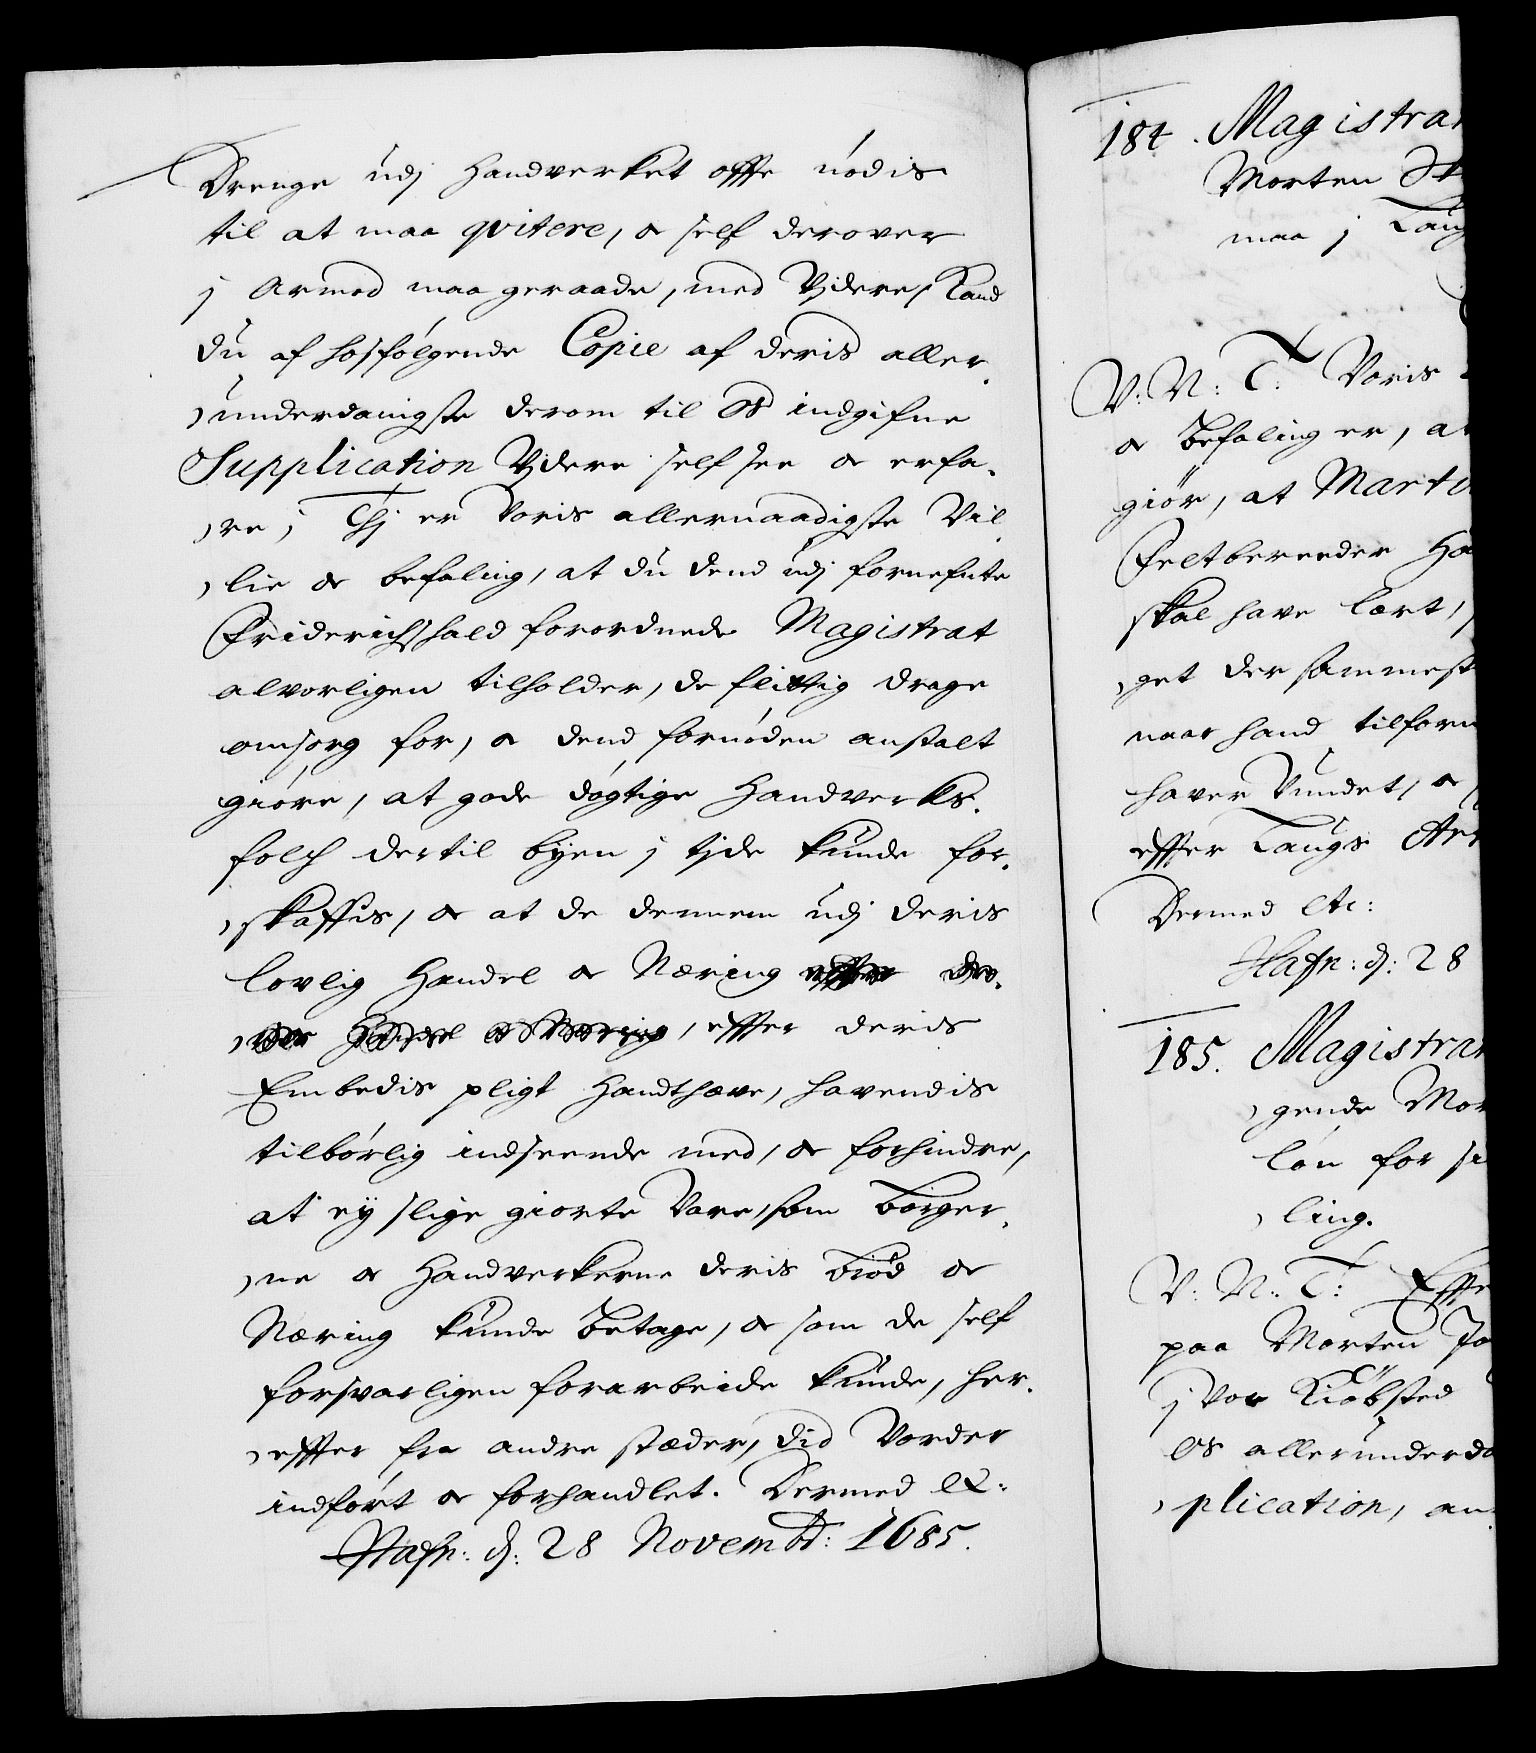 Drenge udj Handverket offte nødis
til at maa qvitere, og self derover
j Armod maa geraade, med Videre, Kand
du af hosfølgende Copie af deris aller-
underdanigste derom til Os indgifne
Supplication Videre self see og erfa-
re; Thj er Voris allernaadigste Vil-
lie og befaling, at du dend udj fornefnte
Friderichshald forordnede Magistrat
alvorligen tilholder, de flittig drage
omsorg for, og dend fornøden anstalt
giøre, at gode døgtige Handverks-
folch dertil byen j tjde kunde for-
skaffis, og at de dennem udj deris
lovlig Handel og Næring
, effter deris
Embedis pligt Handthæve, havendis
tilbørlig indseende med, og forhindre,
at ey slige giorte Vare, som borger-
ne og Handverkerne deris brød og
Næring kunde betage, og som de self
forsvarligen forarbeide kunde, her-
effter fra andre stæder, did Vorder
indført og forhandlet. Dermed etc:
Hafn: d: 28 Novembr: 1685.
184. Magistra
Morten
maa j Laug
V: N: T: Voris
og befaling er, at
giør, at Marte
Feltbereeder Ha
skal have lært,
get der sammest
naar hand tilforn
haver Vundet, og
effter Laugs Art
Dermed etc:
Hafn: d: 28
185. Magistra
gende Mor
løn for si
ling.
V: N: T: Effte
paa Morten Jo
j Vor Kiøbsted
Os allerunderda
plication, an